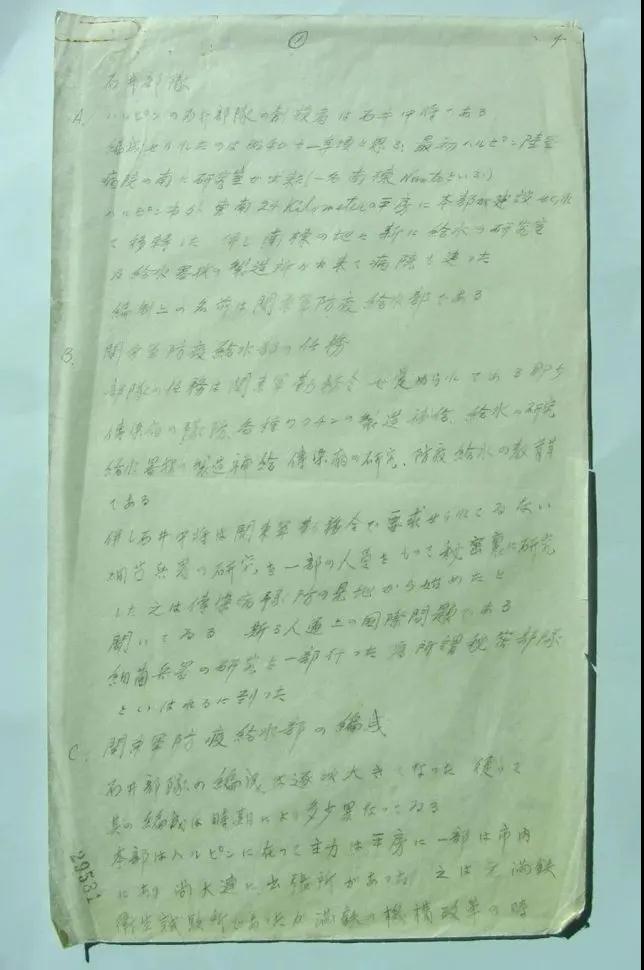 ①
石井部隊
A. ハルピンの石井部隊の創設者は石井中将である
編成せられたのは昭和十一年頃と思う、最初ハルピン陸軍
病院の南に研究室が出来(一名南棟 といふ)
ハルピン 南24 Kilometerの平房に本部が建設せられ
て移転した 併し南棟の地に新に給水の研究室
及給水器材の製造所が出来て病院も建った
編制上の名前は関東軍防疫給水部である
B. 関東軍防疫給水部の任務
部隊の任務は関東軍勤務令で定められてある即ち
傳染病の豫防、各種ワクチンの製造補給、給水の研究
給水器材の製造補給 傳染病の研究、防疫給水の教育
である
併し石井中将は関東軍勤務令で要求せられてゐない
細菌兵器の研究を一部の人員をもって秘密裏に研究
した 之は傳染病豫防の見地から始めたと
聞いてゐる 斯る人道上の国際問題である
細菌兵器の研究を一部行った為所謂秘密部隊
といはれるに到った
C. 関東軍防疫給水部の編成
石井部隊の編成は逐次大きくなった 従って
其の編成は時期により多少異なってゐる
本部はハルピンに在って主力は平房に一部は市内
にあり尚大連に出張所があった 之は元満鉄
衛生試験所であったが満鉄の機構改革の時
29531